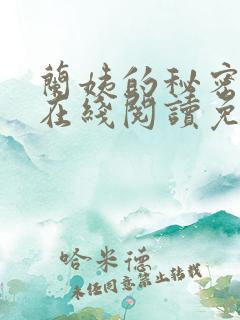 蘭姨的秘密
在綫閱讀免
哈米德
未經同意禁止轉載